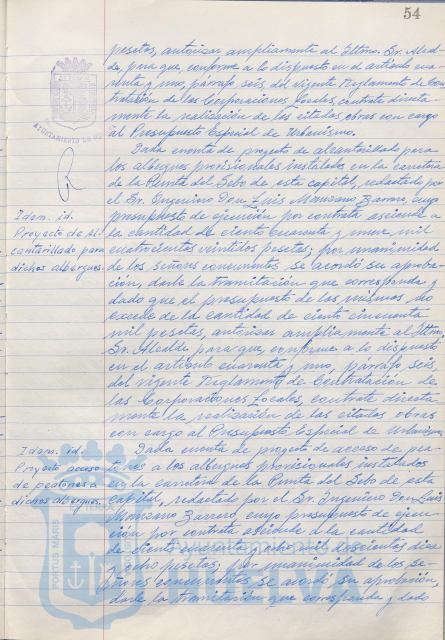 54
pesetas, autorizar ampliamente al Iltmo. Sr. Alcal-
de, para que, conforme a lo dispuesto en el artículo cua-
renta y uno, párrafo seis, del vigente Reglamento de Con-
tratación de las Corporaciones Locales, contrate directa-
mente la realización de las citadas obras con cargo
al Presupuesto Especial de Urbanismo.
Idem. id.
Proyecto de Al-
cantarillado para
dichos albergues.
Dada cuenta de proyecto de alcantarillado para
los albergues provisionales instalados en la carretera
de la Punta del Sebo de esta capital, redactado por
el Sr. Ingeniero Don Luis Manzano Zarrero, cuyo
presupuesto de ejecución por contrata asciende a
la cantidad de ciento cuarenta y nueve mil
cuatrocientas veintidos pesetas; por unanimidad
de los señores concurrentes, se acordó su aproba-
ción, darle la tramitación que corresponda y
dado que el presupuesto de las mismas, no
excede de la cantidad de ciento cincuenta
mil pesetas, autorizar ampliamente al Iltmo.
Sr. Alcalde para que, conforme a lo dispuesto
en el artículo cuarenta y uno, párrafo seis,
del vigente Reglamento de Contratación de
las Corporaciones Locales, contrate directa-
mente la realización de las citadas obras
con cargo al Presupuesto Especial de Urbanismo.
Idem. id.
Proyecto acceso
de peatones a
dichos albergues.
Dada cuenta de proyecto de acceso de pea-
tones a los albergues provisionales instalados
en la carretera de la Punta del Sebo de esta
capital, redactado por el Sr. Ingeniero Don Luis
Manzano Zarrero, cuyo presupuesto de ejecu-
ción por contrata asciende a la cantidad
de ciento cuarenta y ocho mil doscientas diez
y ocho pesetas; por unanimidad de los se-
ñores concurrentes, se acordó su aprobación,
darle la tramitación que corresponda y dado
AYUNTAMIENTO DE
PORTUS MARIS